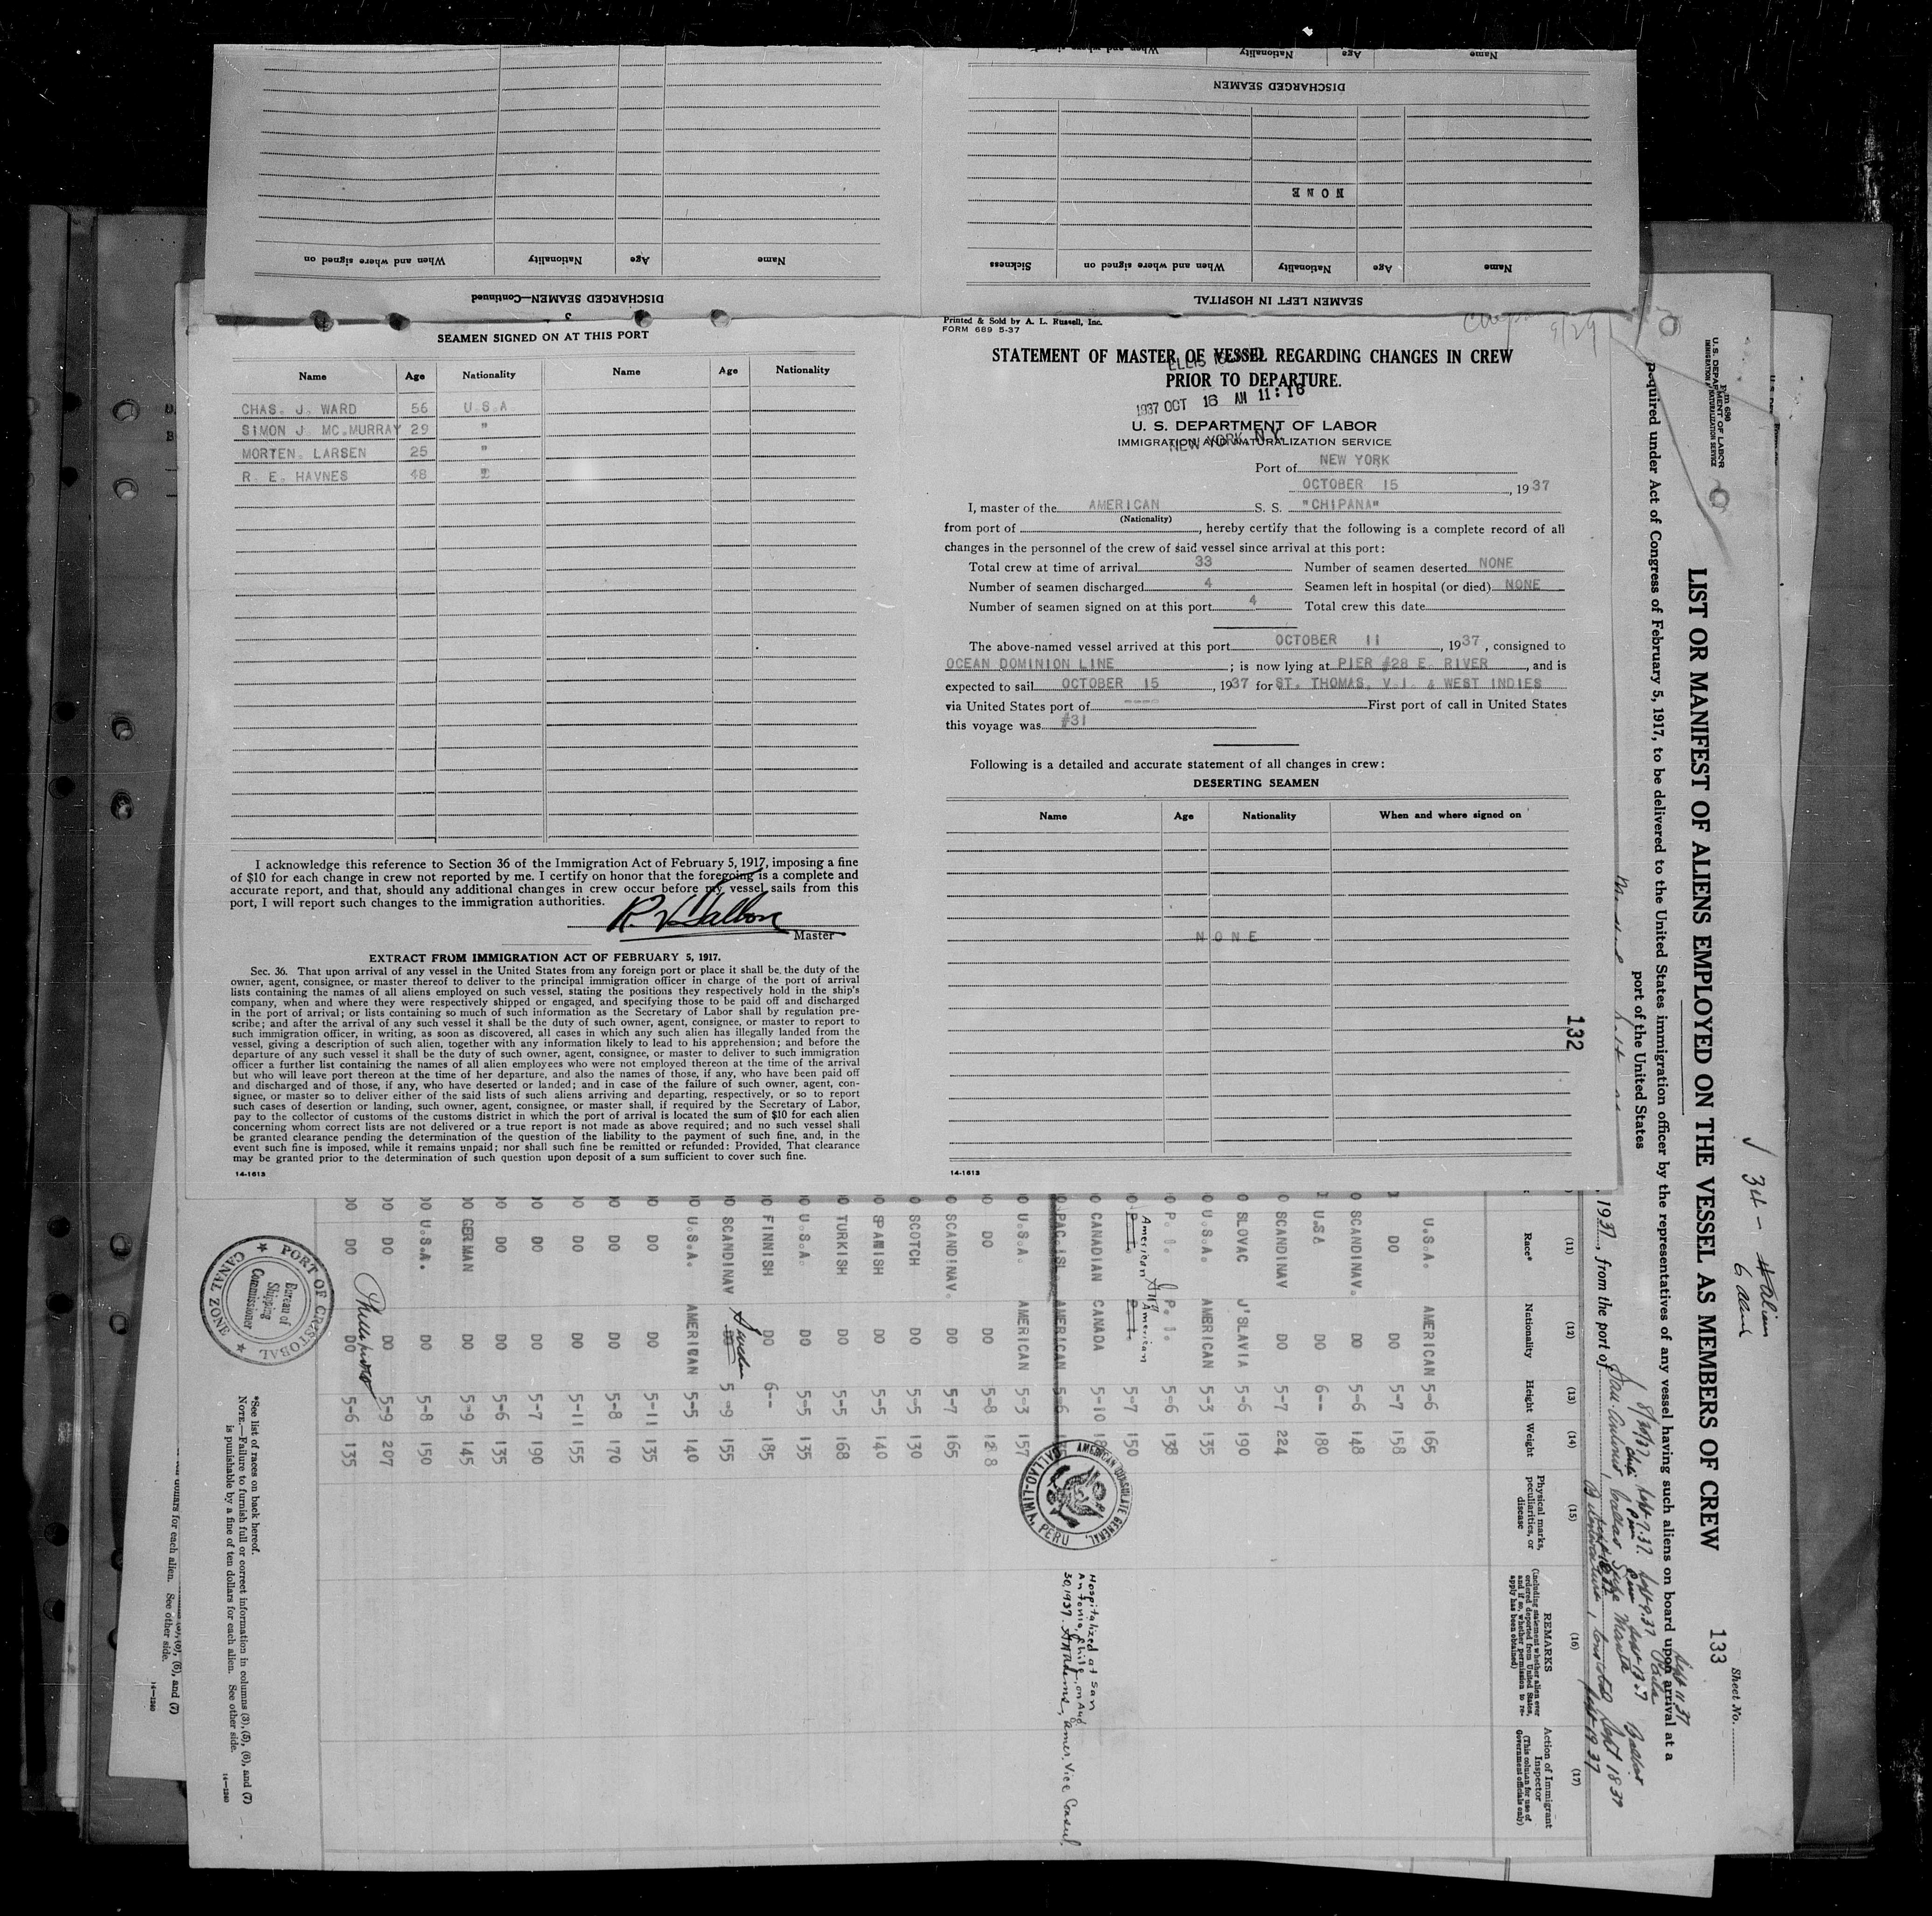 Name Age Nationality When and where signed on
DISCHARGED SEAMEN
NONE
Name Age Nationality When and where signed on Sickness
SEAMEN LEFT IN HOSPITAL
Name Age Nationality When and where signed on
DISCHARGED SEAMEN—Continued
3
SEAMEN SIGNED ON AT THIS PORT
Name Age Nationality Name Age Nationality
CHAS. J. WARD 56 U.S.A.
SIMON J. MC.MURRAY 29 "
MORTEN. LARSEN 25 "
R. E. HAVNES 48
I acknowledge this reference to Section 36 of the Immigration Act of February 5, 1917, imposing a fine
of $10 for each change in crew not reported by me. I certify on honor that the foregoing is a complete and
accurate report, and that, should any additional changes in crew occur before my vessel sails from this
port, I will report such changes to the immigration authorities.
Master
EXTRACT FROM IMMIGRATION ACT OF FEBRUARY 5, 1917.
Sec. 36. That upon arrival of any vessel in the United States from any foreign port or place it shall be the duty of the
owner, agent, consignee, or master thereof to deliver to the principal immigration officer in charge of the port of arrival
lists containing the names of all aliens employed on such vessel, stating the positions they respectively hold in the ship's
company, when and where they were respectively shipped or engaged, and specifying those to be paid off and discharged
in the port of arrival; or lists containing so much of such information as the Secretary of Labor shall by regulation pre-
scribe; and after the arrival of any such vessel it shall be the duty of such owner, agent, consignee, or master to report to
such immigration officer, in writing, as soon as discovered, all cases in which any such alien has illegally landed from the
vessel, giving a description of such alien, together with any information likely to lead to his apprehension; and before the
departure of any such vessel it shall be the duty of such owner, agent, consignee, or master to deliver to such immigration
officer a further list containing the names of all alien employees who were not employed thereon at the time of the arrival
but who will leave port thereon at the time of her departure, and also the names of those, if any, who have been paid off
and discharged and of those, if any, who have deserted or landed; and in case of the failure of such owner, agent, con-
signee, or master so to deliver either of the said lists of such aliens arriving and departing, respectively, or so to report
such cases of desertion or landing, such owner, agent, consignee, or master shall, if required by the Secretary of Labor,
pay to the collector of customs of the customs district in which the port of arrival is located the sum of $10 for each alien
concerning whom correct lists are not delivered or a true report is not made as above required; and no such vessel shall
be granted clearance pending the determination of the question of the liability to the payment of such fine, and, in the
event such fine is imposed, while it remains unpaid; nor shall such fine be remitted or refunded: Provided, That clearance
may be granted prior to the determination of such question upon deposit of a sum sufficient to cover such fine.
14-1613
Printed & Sold by A. L. Russell, Inc.
FORM 689 5-37
9/29
STATEMENT OF MASTER OF VESSEL REGARDING CHANGES IN CREW
PRIOR TO DEPARTURE.
ELLIS ISLAND
1937 OCT 16 AM 11:16
NEW YORK, N.Y.
U. S. DEPARTMENT OF LABOR
IMMIGRATION AND NATURALIZATION SERVICE
Port of NEW YORK
OCTOBER 15, 1937
I, master of the AMERICAN S. S. "CHIPANA"
(Nationality)
from port of , hereby certify that the following is a complete record of all
changes in the personnel of the crew of said vessel since arrival at this port:
Total crew at time of arrival 33 Number of seamen deserted NONE
Number of seamen discharged 4 Seamen left in hospital (or died) NONE
Number of seamen signed on at this port 4 Total crew this date
The above-named vessel arrived at this port OCTOBER 11, 1937, consigned to
OCEAN DOMINION LINE; is now lying at PIER #28 E. RIVER, and is
expected to sail OCTOBER 15, 1937 for ST. THOMAS. V.I. & WEST INDIES
via United States port of ---- First port of call in United States
this voyage was #31
Following is a detailed and accurate statement of all changes in crew:
DESERTING SEAMEN
Name Age Nationality When and where signed on
NONE
132
14-1613
Form 680
U. S. DEPARTMENT OF LABOR
IMMIGRATION & NATURALIZATION SERVICE
LIST OR MANIFEST OF ALIENS EMPLOYED ON THE VESSEL AS MEMBERS OF CREW
133
Sheet No.
√ 34 - Alien
6 Alien
Required under Act of Congress of February 5, 1917, to be delivered to the United States immigration officer by the representatives of any vessel having such aliens on board upon arrival at a
port of the United States
1937, from the port of San Antonio
(11) (12) (13) (14) (15) (16) (17)
Race* Nationality Height Weight Physical marks, peculiarities, or disease
REMARKS
(Including statement whether alien ever ordered deported from United States, and if so, whether permission to reapply has been obtained)
Action of Immigrant Inspector
(This column for use of Government officials only)
U.S.A. AMERICAN 5-6 165
DO DO 5-7 158
SCANDINAV. DO 5-6 148
U.S.A DO 6-- 180
SCANDINAV DO 5-7 224
SLOVAC J'SLAVIA 5-6 190
U.S.A. AMERICAN 5-3 135
P. I. P. I. 5-6 138
American American
P.I. P.I. 5-7 150
CANADIAN CANADA 5-10
PAC.ISL. AMERICAN 5-6
Hospitalized at San
Antonio, Chile, on Aug
30, 1937. Amer. Vice Consul.
U.S.A. AMERICAN 5-3 157
DO DO 5-8 128
SCANDINAV. DO 5-7 165
SCOTCH DO 5-5 130
SPANISH DO 5-5 140
TURKISH DO 5-5 168
U.S.A. DO 5-5 135
FINNISH DO 6-- 185
SCANDINAV Sweden 5-9 155
U.S.A. AMERICAN 5-5 140
DO DO 5-11 135
DO DO 5-8 170
DO DO 5-11 155
DO DO 5-7 190
DO DO 5-6 135
GERMAN DO 5-9 145
U.S.A. DO 5-8 150
DO DO 5-9 207
DO DO 5-6 135
AMERICAN CONSULATE GENERAL,
CALLAO-LIMA, PERU
PORT OF CRISTOBAL
CANAL ZONE
Bureau of
Shipping
Commissioner
*See list of races on back hereof.
NOTE.—Failure to furnish full or correct information in columns (3), (5), (6), and (7)
is punishable by a fine of ten dollars for each alien. See other side.
14-1240